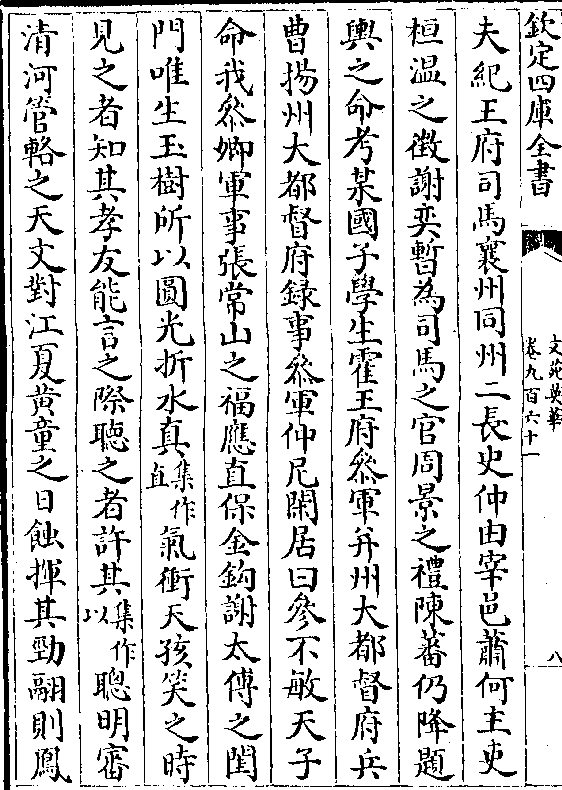 欽定四庫全書
文苑英華
卷九百六十一
八
夫紀王府司馬襄州同州二長史仲由宰邑蕭何主吏
桓温之徴謝奕暫為司馬之官周景之禮陳蕃仍降題
輿之命考某國子學生霍王府叅軍并州大都督府兵
曹揚州大都督府録事叅軍仲尼閑居曰參不敏天子
命我叅卿軍事張常山之福應直保金鈎謝太傅之閨
門唯生玉樹所以圓光折水真集作直氣衝天孩笑之時
見之者知其孝友能言之際聽之者許其集作以聰明審
清河管輅之天文對江夏黄童之日蝕揮其勁翮則鳳